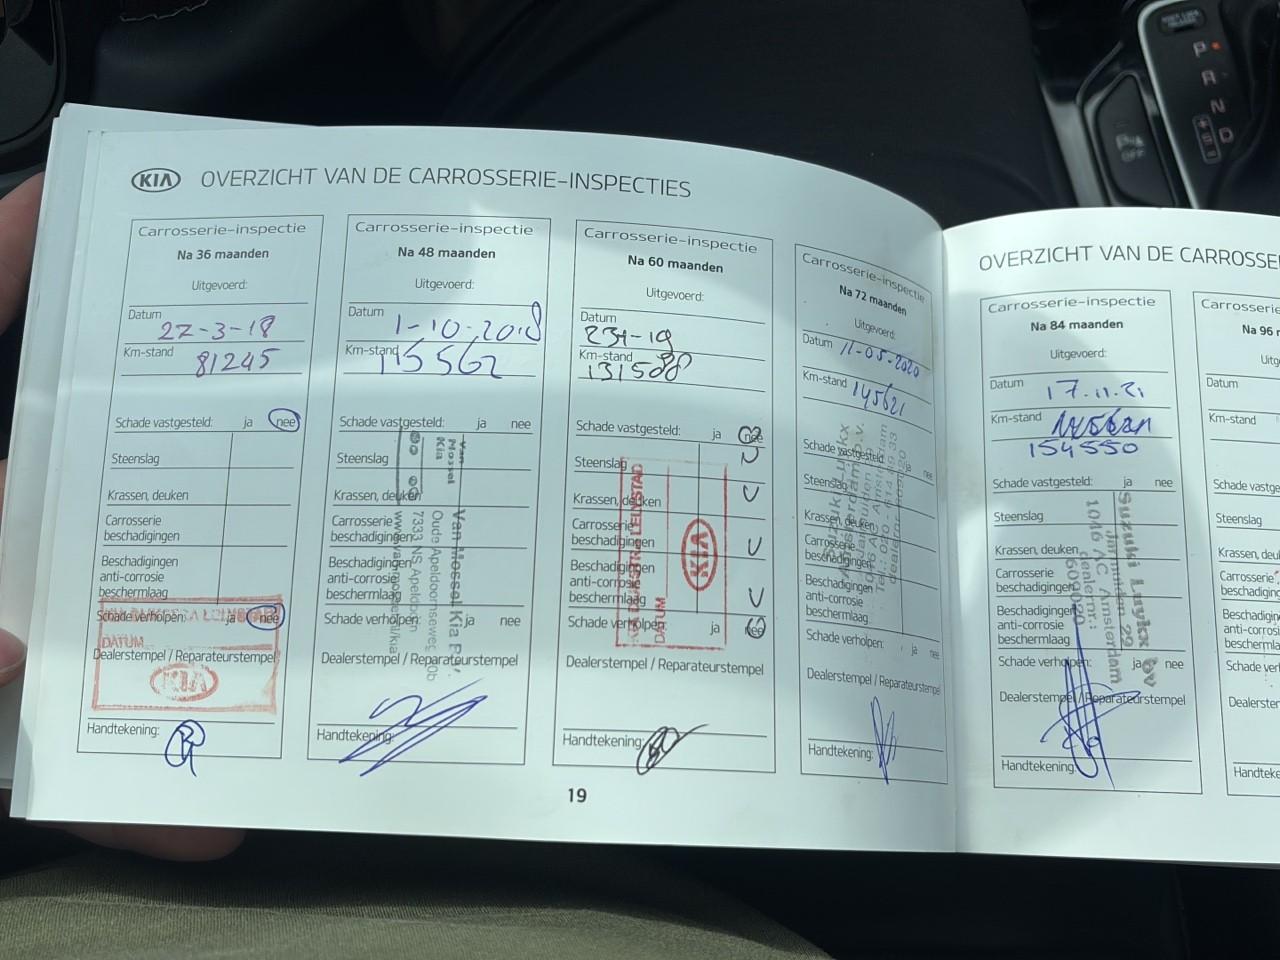 KIA OVERZICHT VAN DE CARROSSERIE-INSPECTIES
Carrosserie-inspectie
Na 36 maanden
Uitgevoerd:
Datum
27-3-18
Km-stand 81245
Schade vastgesteld: ja nee
Steenslag
Krassen, deuken
Carrosserie
beschadigingen
Beschadigingen
anti-corrosie
beschermlaag
Schade verholpen: ja nee
DATUM
Dealerstempel / Reparateurstempel
KIA
Handtekening:
Carrosserie-inspectie
Na 48 maanden
Uitgevoerd:
Datum 1-10-2018
Km-stand 115562
Schade vastgesteld: ja nee
Steenslag
Krassen, deuken
Carrosserie
beschadigingen
Beschadigingen
anti-corrosie
beschermlaag
Schade verholpen: ja nee
Van
Mossel
Kia
Van Mossel Kia
Oude Apeldoornseweg
7333 NS Apeldoorn
Dealerstempel / Reparateurstempel
Handtekening:
Carrosserie-inspectie
Na 60 maanden
Uitgevoerd:
Datum
Km-stand
131508
Schade vastgesteld: ja nee
Steenslag
Krassen, deuken
Carrosserie
beschadigingen
Beschadigingen
anti-corrosie
beschermlaag
Schade verholpen: ja nee
LELYSTAD
DATUM
KIA
Dealerstempel / Reparateurstempel
Handtekening:
19
Carrosserie-inspectie
Na 72 maanden
Uitgevoerd:
Datum 11-05-2020
Km-stand 145621
Schade vastgesteld: ja nee
Steenslag
Krassen, deuken
Carrosserie
beschadigingen
Beschadigingen
anti-corrosie
beschermlaag
Schade verholpen: ja nee
Suzuki Luykx
Amsterdam b.v.
Dealerstempel / Reparateurstempel
Handtekening:
OVERZICHT VAN DE CARROSSE
Carrosserie-inspectie
Na 84 maanden
Uitgevoerd:
Datum 17.11.21
Km-stand
154550
Schade vastgesteld: ja nee
Steenslag
Krassen, deuken
Carrosserie
beschadigingen
Beschadigingen
anti-corrosie
beschermlaag
Schade verholpen: ja nee
Suzuki Luykx bv
Jarmuiden 29
1046 AC Amsterdam
dealernr.:
Dealerstempel / Reparateurstempel
Handtekening:
Carrosserie
Na 96 m
Uitg
Datum
Km-stand
Schade vastge
Steenslag
Krassen, deu
Carrosserie
beschadiging
Beschadiging
anti-corrosie
beschermla
Schade verh
Dealersten
Handteke
P
R
N
D
OFF